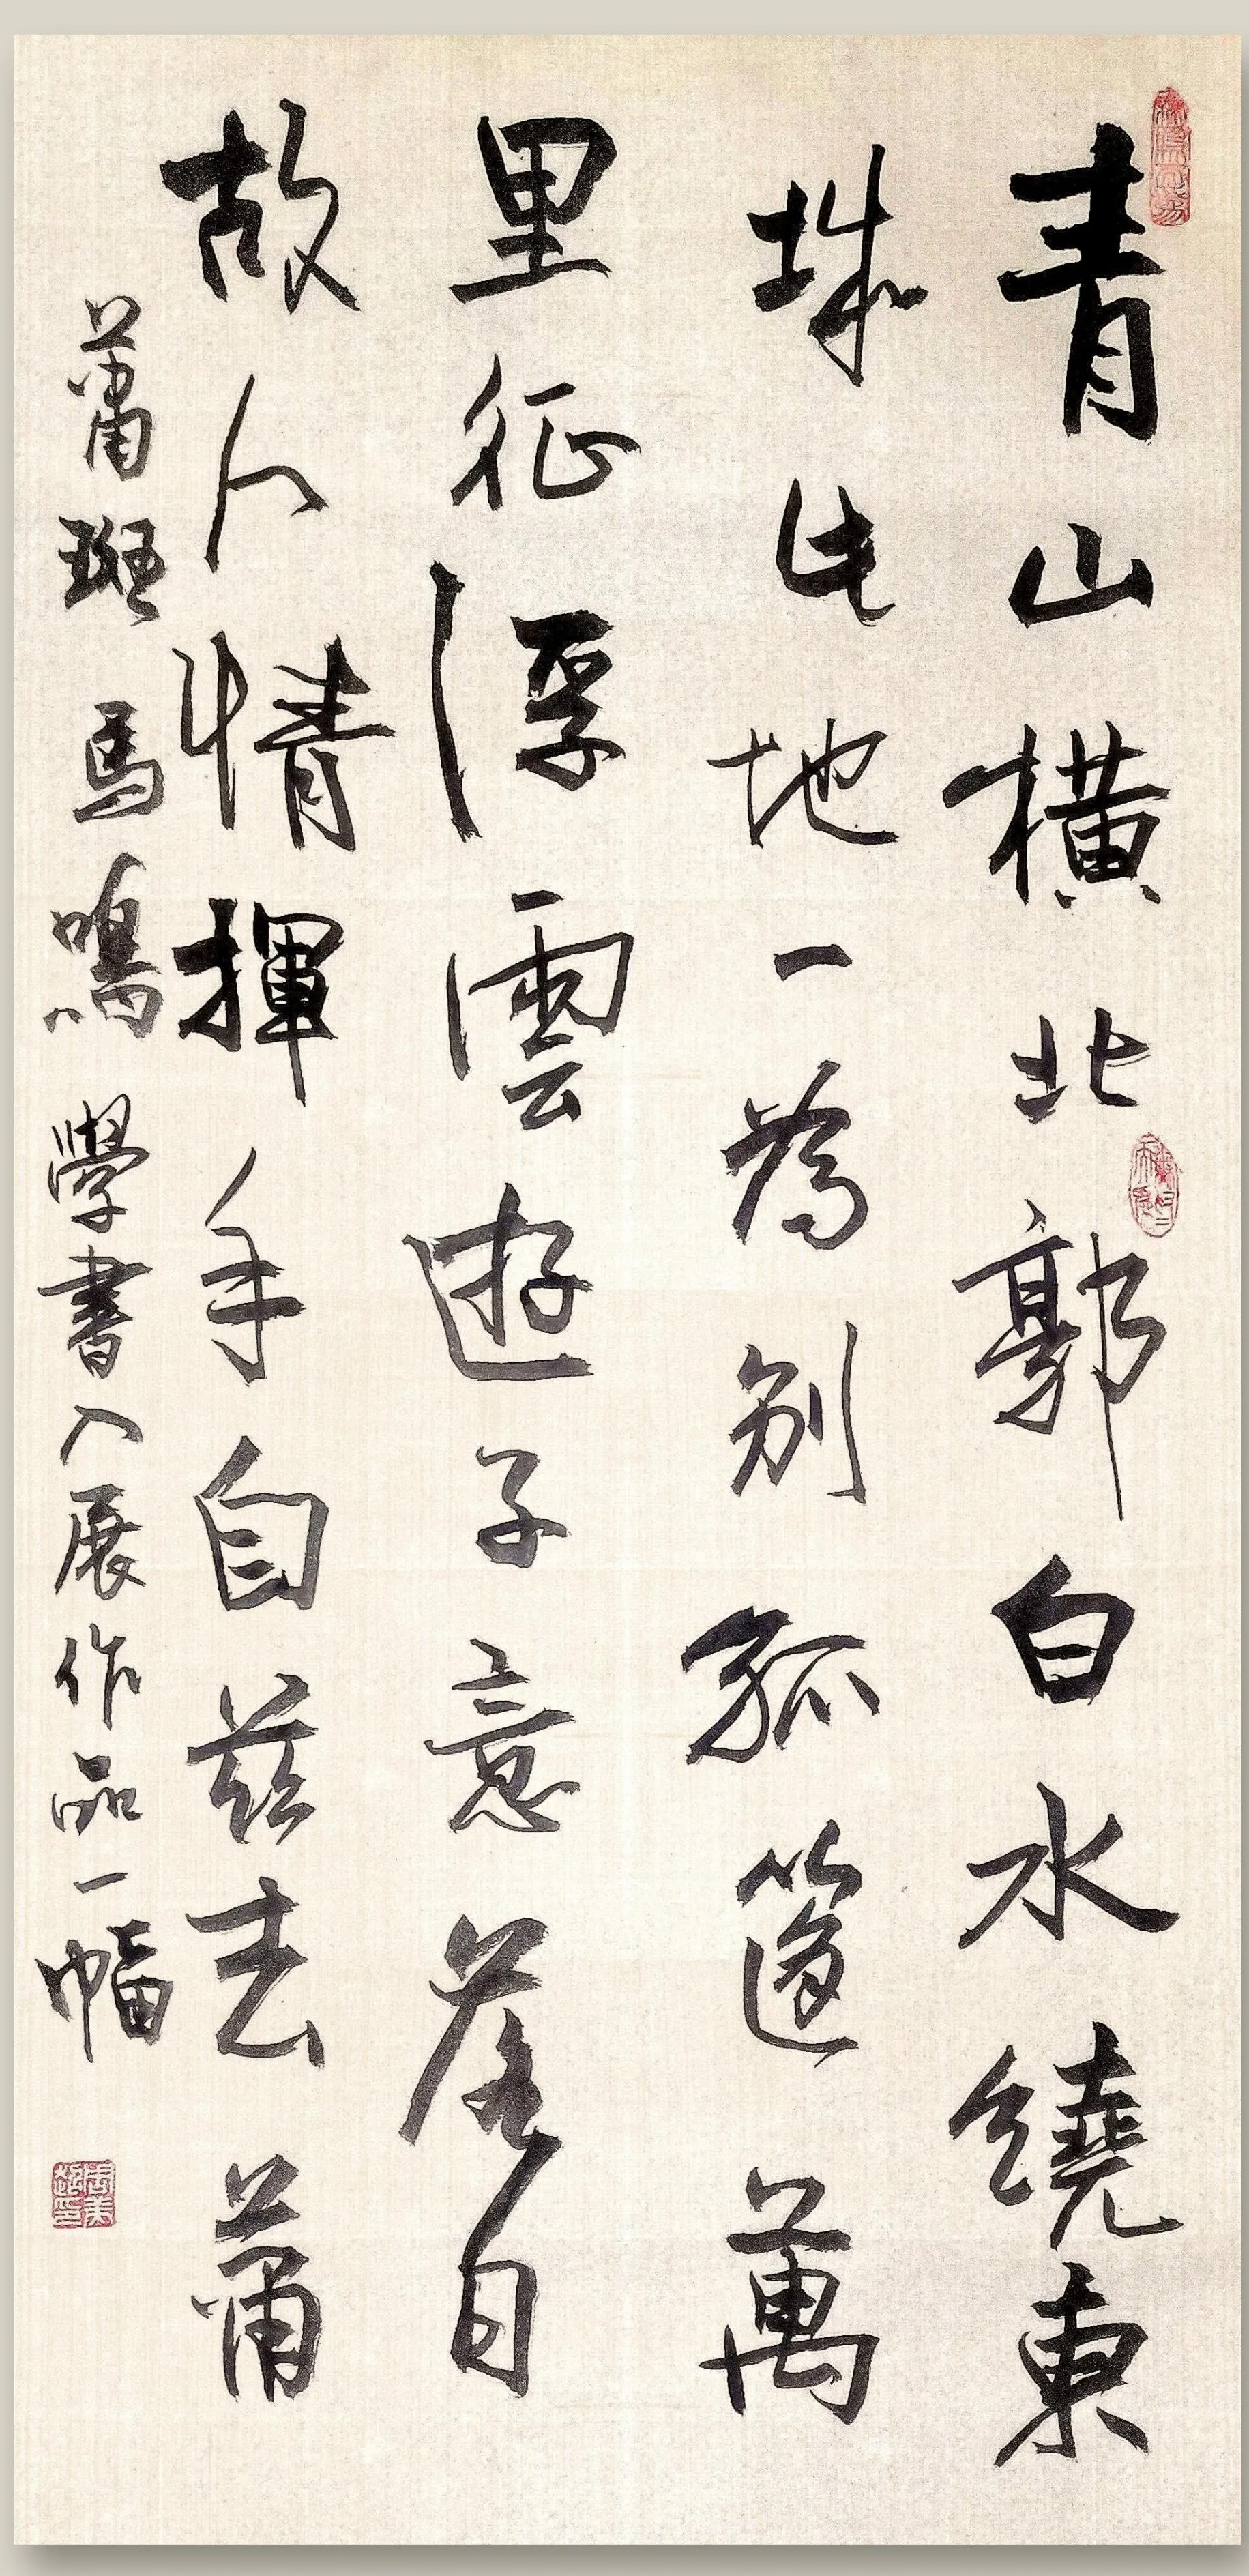 青山橫北郭白水繞東
城此地一為別孤篷萬
里征浮雲遊子意落日
故人情揮手自茲去蕭
蕭班馬鳴學書入展作品一幅